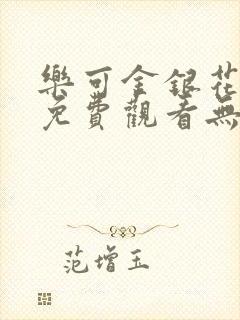 樂可金銀花
免費觀看無
范增玉